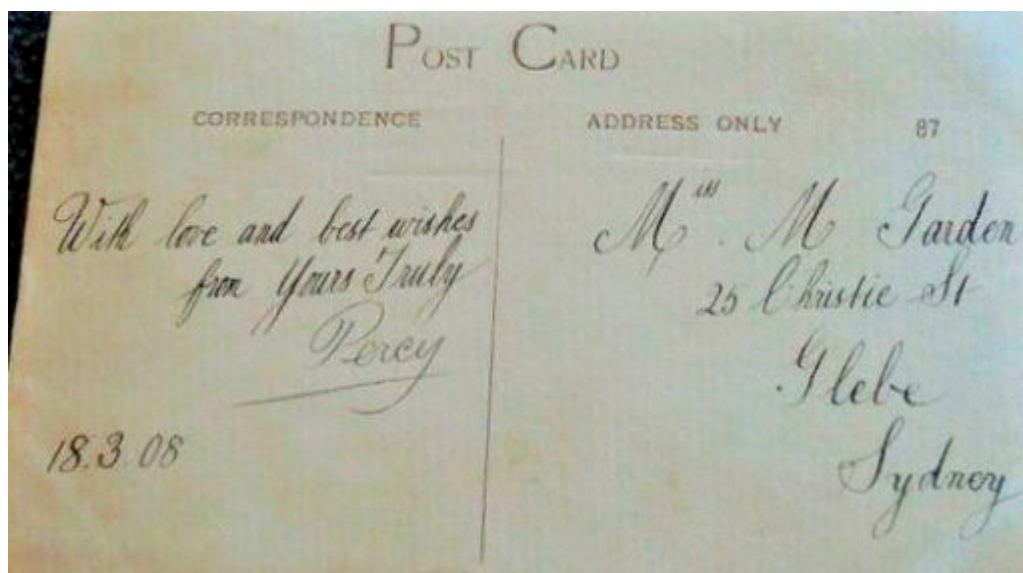 POST CARD
CORRESPONDENCE
With love and best wishes
from Yours Truly
Percy
18.3.08
ADDRESS ONLY
87
Miss. M Garden
25 Christie St
Glebe
Sydney